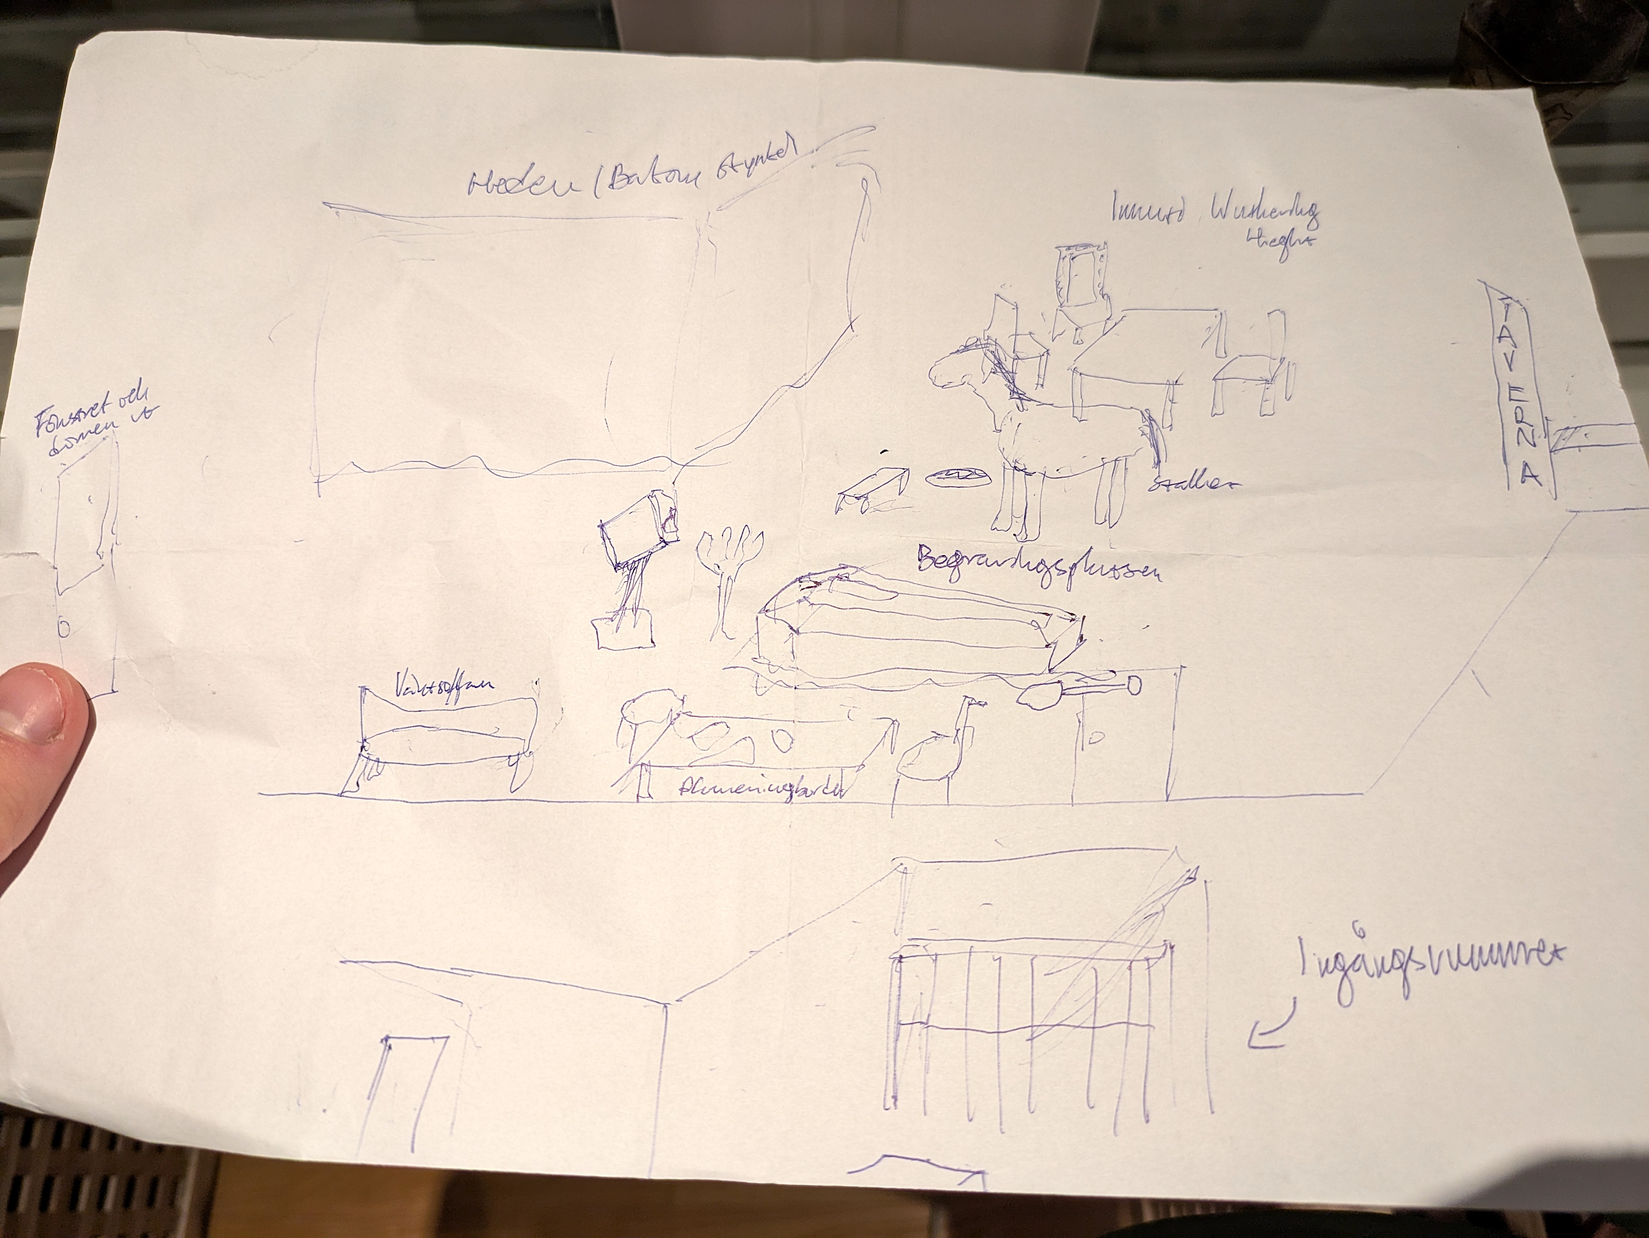 Heden (Bakom stycket)
Inuuti Wuthering
Heights
TAVERNA
Fönstret och
dörren ut
Stallet
Begravningsplatsen
Väntsoffan
Ingångsrummet